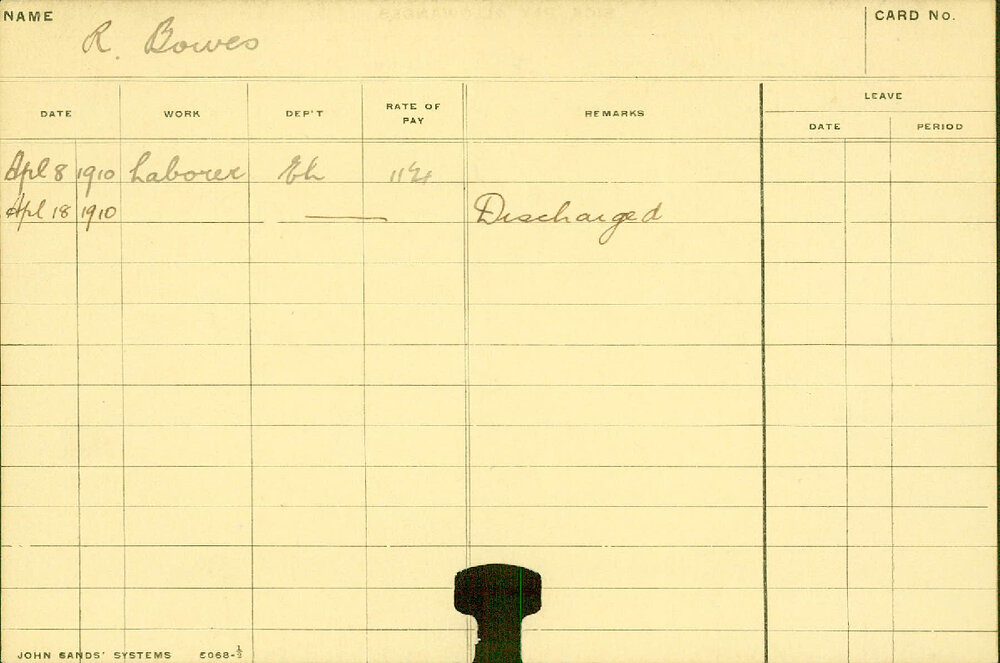 NAME R. Bowes CARD No.
LEAVE
DATE WORK DEP'T RATE OF PAY REMARKS DATE PERIOD
Apl 8 1910 Laborer Eh
Apl 18 1910 — Discharged
JOHN SANDS' SYSTEMS 5068-1/3